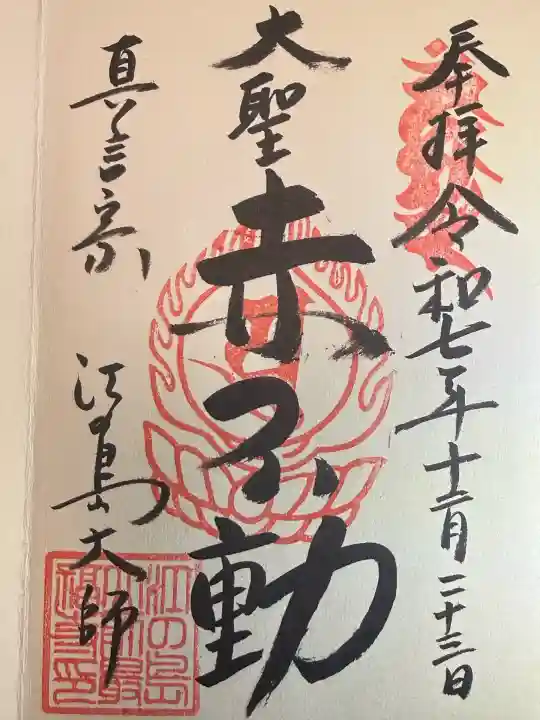 奉拝 令和七年十二月二十三日
大聖 赤不動
真言宗 江の島大師
江の島